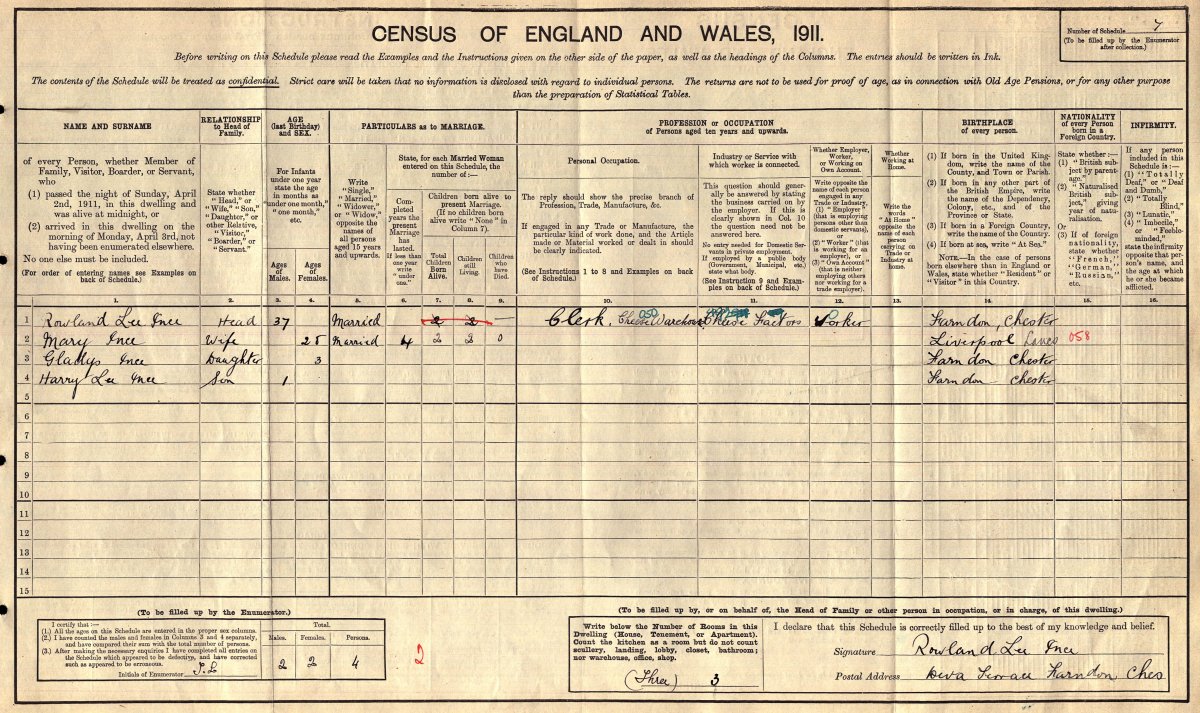 CENSUS OF ENGLAND AND WALES, 1911.
Number of Schedule 7
(To be filled up by the Enumerator
after collection.)
Before writing on this Schedule please read the Examples and the Instructions given on the other side of the paper, as well as the headings of the Columns. The entries should be written in Ink.
The contents of the Schedule will be treated as confidential. Strict care will be taken that no information is disclosed with regard to individual persons. The returns are not to be used for proof of age, as in connection with Old Age Pensions, or for any other purpose
than the preparation of Statistical Tables.
NAME AND SURNAME
of every Person, whether Member of
Family, Visitor, Boarder, or Servant,
who
(1) passed the night of Sunday, April
2nd, 1911, in this dwelling and
was alive at midnight, or
(2) arrived in this dwelling on the
morning of Monday, April 3rd, not
having been enumerated elsewhere.
No one else must be included.
(For order of entering names see Examples on
back of Schedule.)
RELATIONSHIP
to Head of
Family.
State whether
"Head," or
"Wife," "Son,"
"Daughter," or
other Relative,
"Visitor,"
"Boarder," or
"Servant."
AGE
(last Birthday)
and SEX.
For Infants
under one year
state the age
in months as
"under one month,"
"one month,"
etc.
Ages
of
Males.
Ages
of
Females.
PARTICULARS as to MARRIAGE.
Write
"Single,"
"Married,"
"Widower,"
or "Widow,"
opposite the
names of
all persons
aged 15 years
and upwards.
State, for each Married Woman
entered on this Schedule, the
number of:—
Completed
years the
present
Marriage
has
lasted.
If less than
one year
write
"under
one."
Children born alive to
present Marriage.
(If no children born
alive write "None" in
Column 7).
Total
Children
Born
Alive.
Children
still
Living.
Children
who
have
Died.
PROFESSION or OCCUPATION
of Persons aged ten years and upwards.
Personal Occupation.
The reply should show the precise branch of
Profession, Trade, Manufacture, &c.
If engaged in any Trade or Manufacture, the
particular kind of work done, and the Article
made or Material worked or dealt in should
be clearly indicated.
(See Instructions 1 to 8 and Examples on back
of Schedule.)
Industry or Service with
which worker is connected.
This question should generally
be answered by stating
the business carried on by
the employer. If this is
clearly shown in Col. 10
the question need not be
answered here.
No entry needed for Domestic Servants
in private employment.
If employed by a public body
(Government, Municipal, etc.)
state what body.
(See Instruction 9 and Examples
on back of Schedule.)
Whether Employer,
Worker,
or Working on
Own Account.
Write opposite the
name of each person
engaged in any
Trade or Industry,
(1) "Employer"
(that is employing
persons other than
domestic servants),
or
(2) "Worker" (that
is working for an
employer), or
(3) "Own Account"
(that is neither
employing others
nor working for a
trade employer).
Whether
Working at
Home.
Write the
words
"At Home"
opposite the
name of each
person
carrying on
Trade or
Industry at
home.
BIRTHPLACE
of every person.
(1) If born in the United Kingdom,
write the name of the
County, and Town or Parish.
(2) If born in any other part of
the British Empire, write
the name of the Dependency,
Colony, etc., and of the
Province or State.
(3) If born in a Foreign Country,
write the name of the Country.
(4) If born at sea, write "At Sea."
NOTE.—In the case of persons
born elsewhere than in England or
Wales, state whether "Resident" or
"Visitor" in this Country.
NATIONALITY
of every Person
born in a
Foreign Country.
State whether:—
(1) "British subject
by parentage."
(2) "Naturalised
British subject,"
giving
year of naturalisation.
Or
(3) If of foreign
nationality,
state whether
"French,"
"German,"
"Russian,"
etc.
INFIRMITY.
If any person
included in this
Schedule is:—
(1) "Totally
Deaf," or "Deaf
and Dumb,"
(2) "Totally
Blind,"
(3) "Lunatic,"
(4) "Imbecile,"
or "Feeble-minded,"
state the infirmity
opposite that person's
name, and
the age at which
he or she became
afflicted.
1. 2. 3. 4. 5. 6. 7. 8. 9. 10. 11. 12. 13. 14. 15. 16.
1 Rowland Lee Ince Head 37 Married 2 2 Clerk, Cheese Warehouse 050 Cheese Factors Worker Farndon, Chester
2 Mary Ince Wife 25 Married 4 2 2 0 Liverpool Lancs 058
3 Gladys Ince Daughter 3 Farndon Chester
4 Harry Lee Ince Son 1 Farndon Chester
5
6
7
8
9
10
11
12
13
14
15
(To be filled up by the Enumerator.)
I certify that:—
(1.) All the ages on this Schedule are entered in the proper sex columns.
(2.) I have counted the males and females in Columns 3 and 4 separately,
and have compared their sum with the total number of persons.
(3.) After making the necessary enquiries I have completed all entries on
the Schedule which appeared to be defective, and have corrected
such as appeared to be erroneous.
Initials of Enumerator
Total.
Males. Females. Persons.
2 2 4
2
(To be filled up by, or on behalf of, the Head of Family or other person in occupation, or in charge, of this dwelling.)
Write below the Number of Rooms in this
Dwelling (House, Tenement, or Apartment).
Count the kitchen as a room but do not count
scullery, landing, lobby, closet, bathroom;
nor warehouse, office, shop.
(Three) 3
I declare that this Schedule is correctly filled up to the best of my knowledge and belief.
Signature Rowland Lee Ince
Postal Address Deva Terrace Farndon, Ches